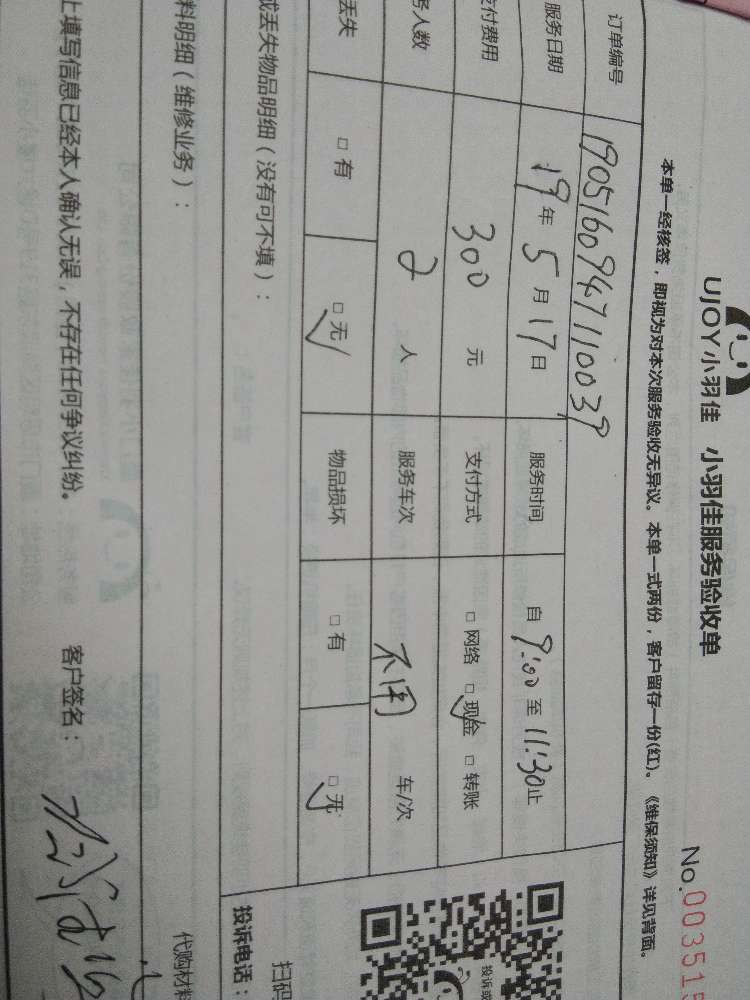 UJOY小羽佳 小羽佳服务验收单
No.003515
本单一经核签，即视为对本次服务验收无异议。本单一式两份，客户留存一份(红)。《维保须知》详见背面。
订单编号 1905160947110039
服务日期 19年5月17日 服务时间 自9:00至11:30止
付费用 300元 支付方式 □网络 □现金 □转账
人数 2人 服务车次 不用 车/次
丢失 □有 □无 物品损坏 □有 □无
丢失物品明细（没有可不填）：
料明细（维修业务）：
填写信息已经本人确认无误，不存在任何争议纠纷。 客户签名：
投诉或
扫码
投诉电话：
代购材料